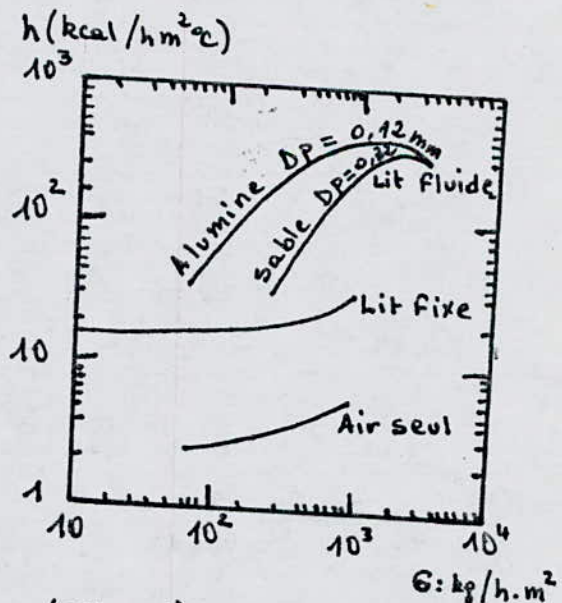 h (kcal/hm²°c)
10³
Alumine DP = 0,12 mm
sable DP=0,22
Lit fluide
10²
Lit fixe
10
Air seul
1
10 10² 10³ 10⁴
G: kg/h.m²